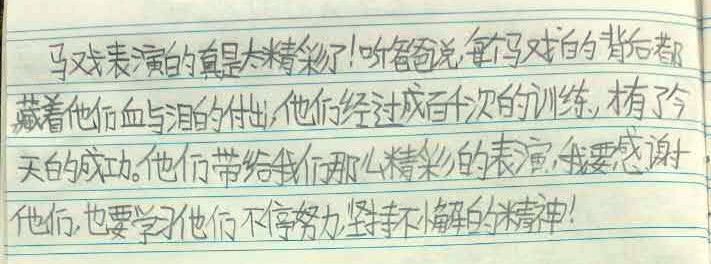 马戏表演的真是太精彩了!听爸爸说,每个马戏的的背后都
藏着他们血与泪的付出,他们经过成百千次的训练,才有了今
天的成功。他们带给我们那么精彩的表演,我要感谢
他们,也要学习他们不停努力,坚持不懈的精神!